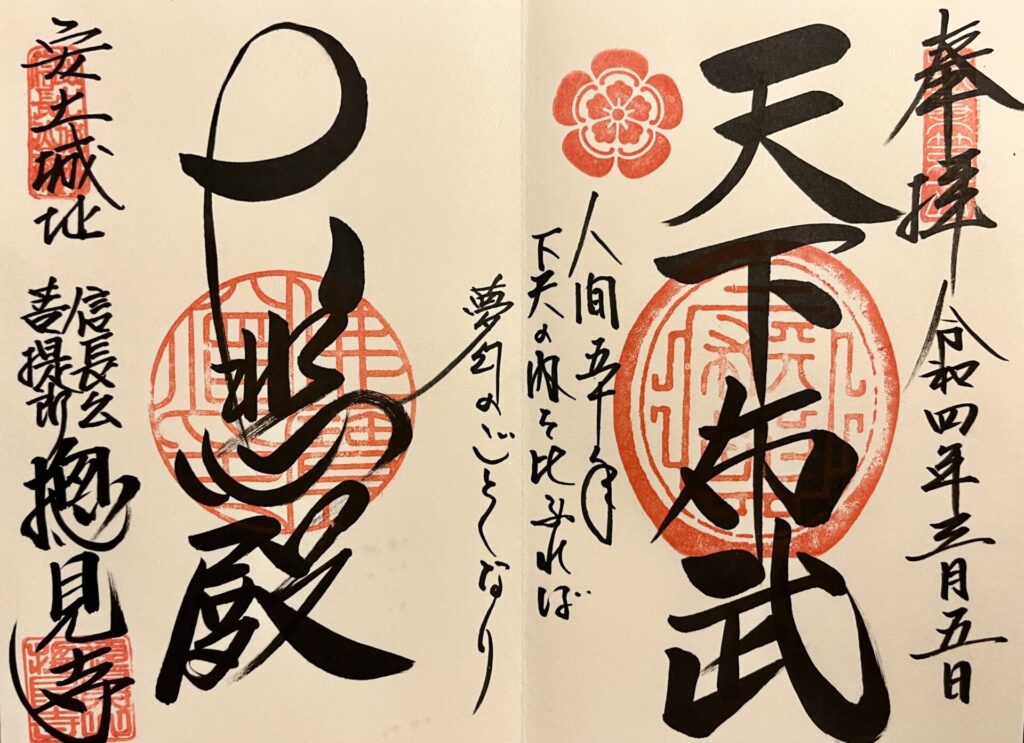 奉拝 令和四年三月五日
天下布武
人間五十年
下天の内を比ぶれば
夢幻のごとくなり
大悲殿
安土城址
信長公
菩提所
摠見寺